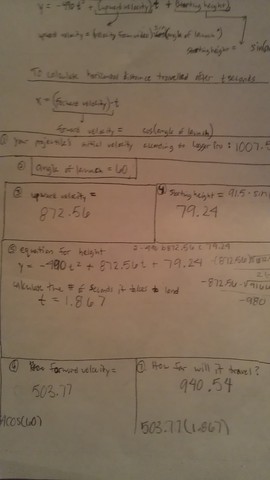 y = -490t² + (upward velocity)t + (starting height)
upward velocity = (velocity from video) · sin(angle of launch)
starting height =
To calculate horizontal distance travelled after t seconds
x = (forward velocity) · t
forward velocity = cos(angle of launch)
① your projectile's initial velocity according to Logger Pro: 1007.5
② angle of launch = 60
③ upward velocity =
872.56
4. Starting height = 91.5 · sin
79.24
2 · -490 ± 872.56 ± 79.24
⑤ equation for height
y = -490t² + 872.56t + 79.24
calculate the # of seconds it takes to land
t = 1.867
-872.56
-980
⑥ Forward velocity =
503.77
cos(60)
⑦ How far will it travel?
940.54
503.77(1.867)